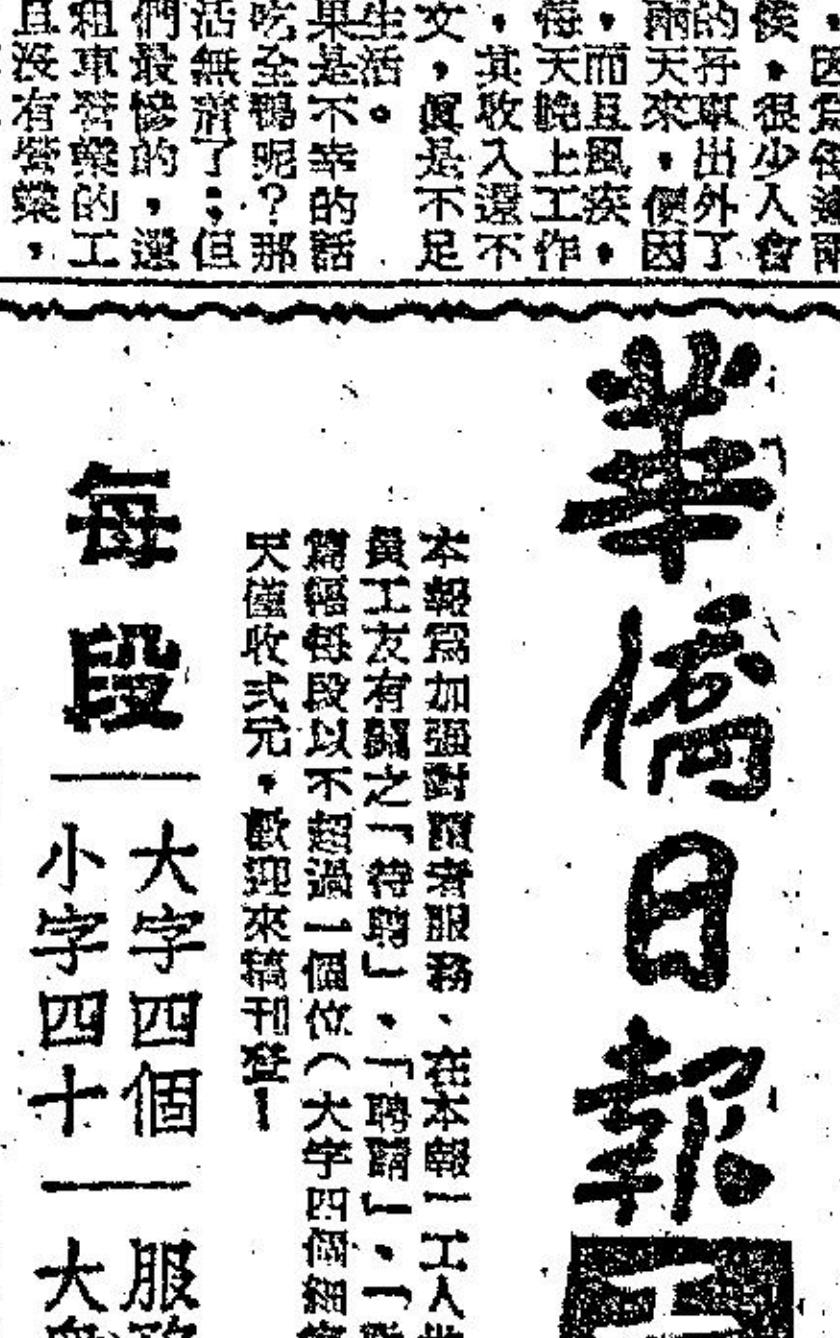 因爲
候，很少人會
的孖車出外了
雨天來，便因
，而且風疾，
每天晚上工作
，其收入還不
文，眞是不足
生活。
果是不幸的話
吃全鴨呢？那
活無着了；但
們最慘的，還
租車營業的工
且沒有營業，
華僑日報
本報爲加強對讀者服務、在本報「工人
員工友有關之「待聘」，「聘請」，「
篇幅每段以不超過一個位（大字四個細
天僅收式元，歡迎來稿刊登！
每段
大字四個
小字四十
服務
大